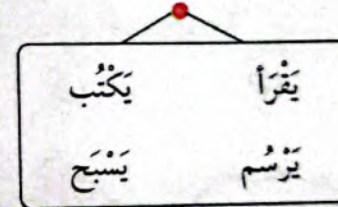 يَقْرَأ يَكْتُب
يَرْسُم يَسْبَح